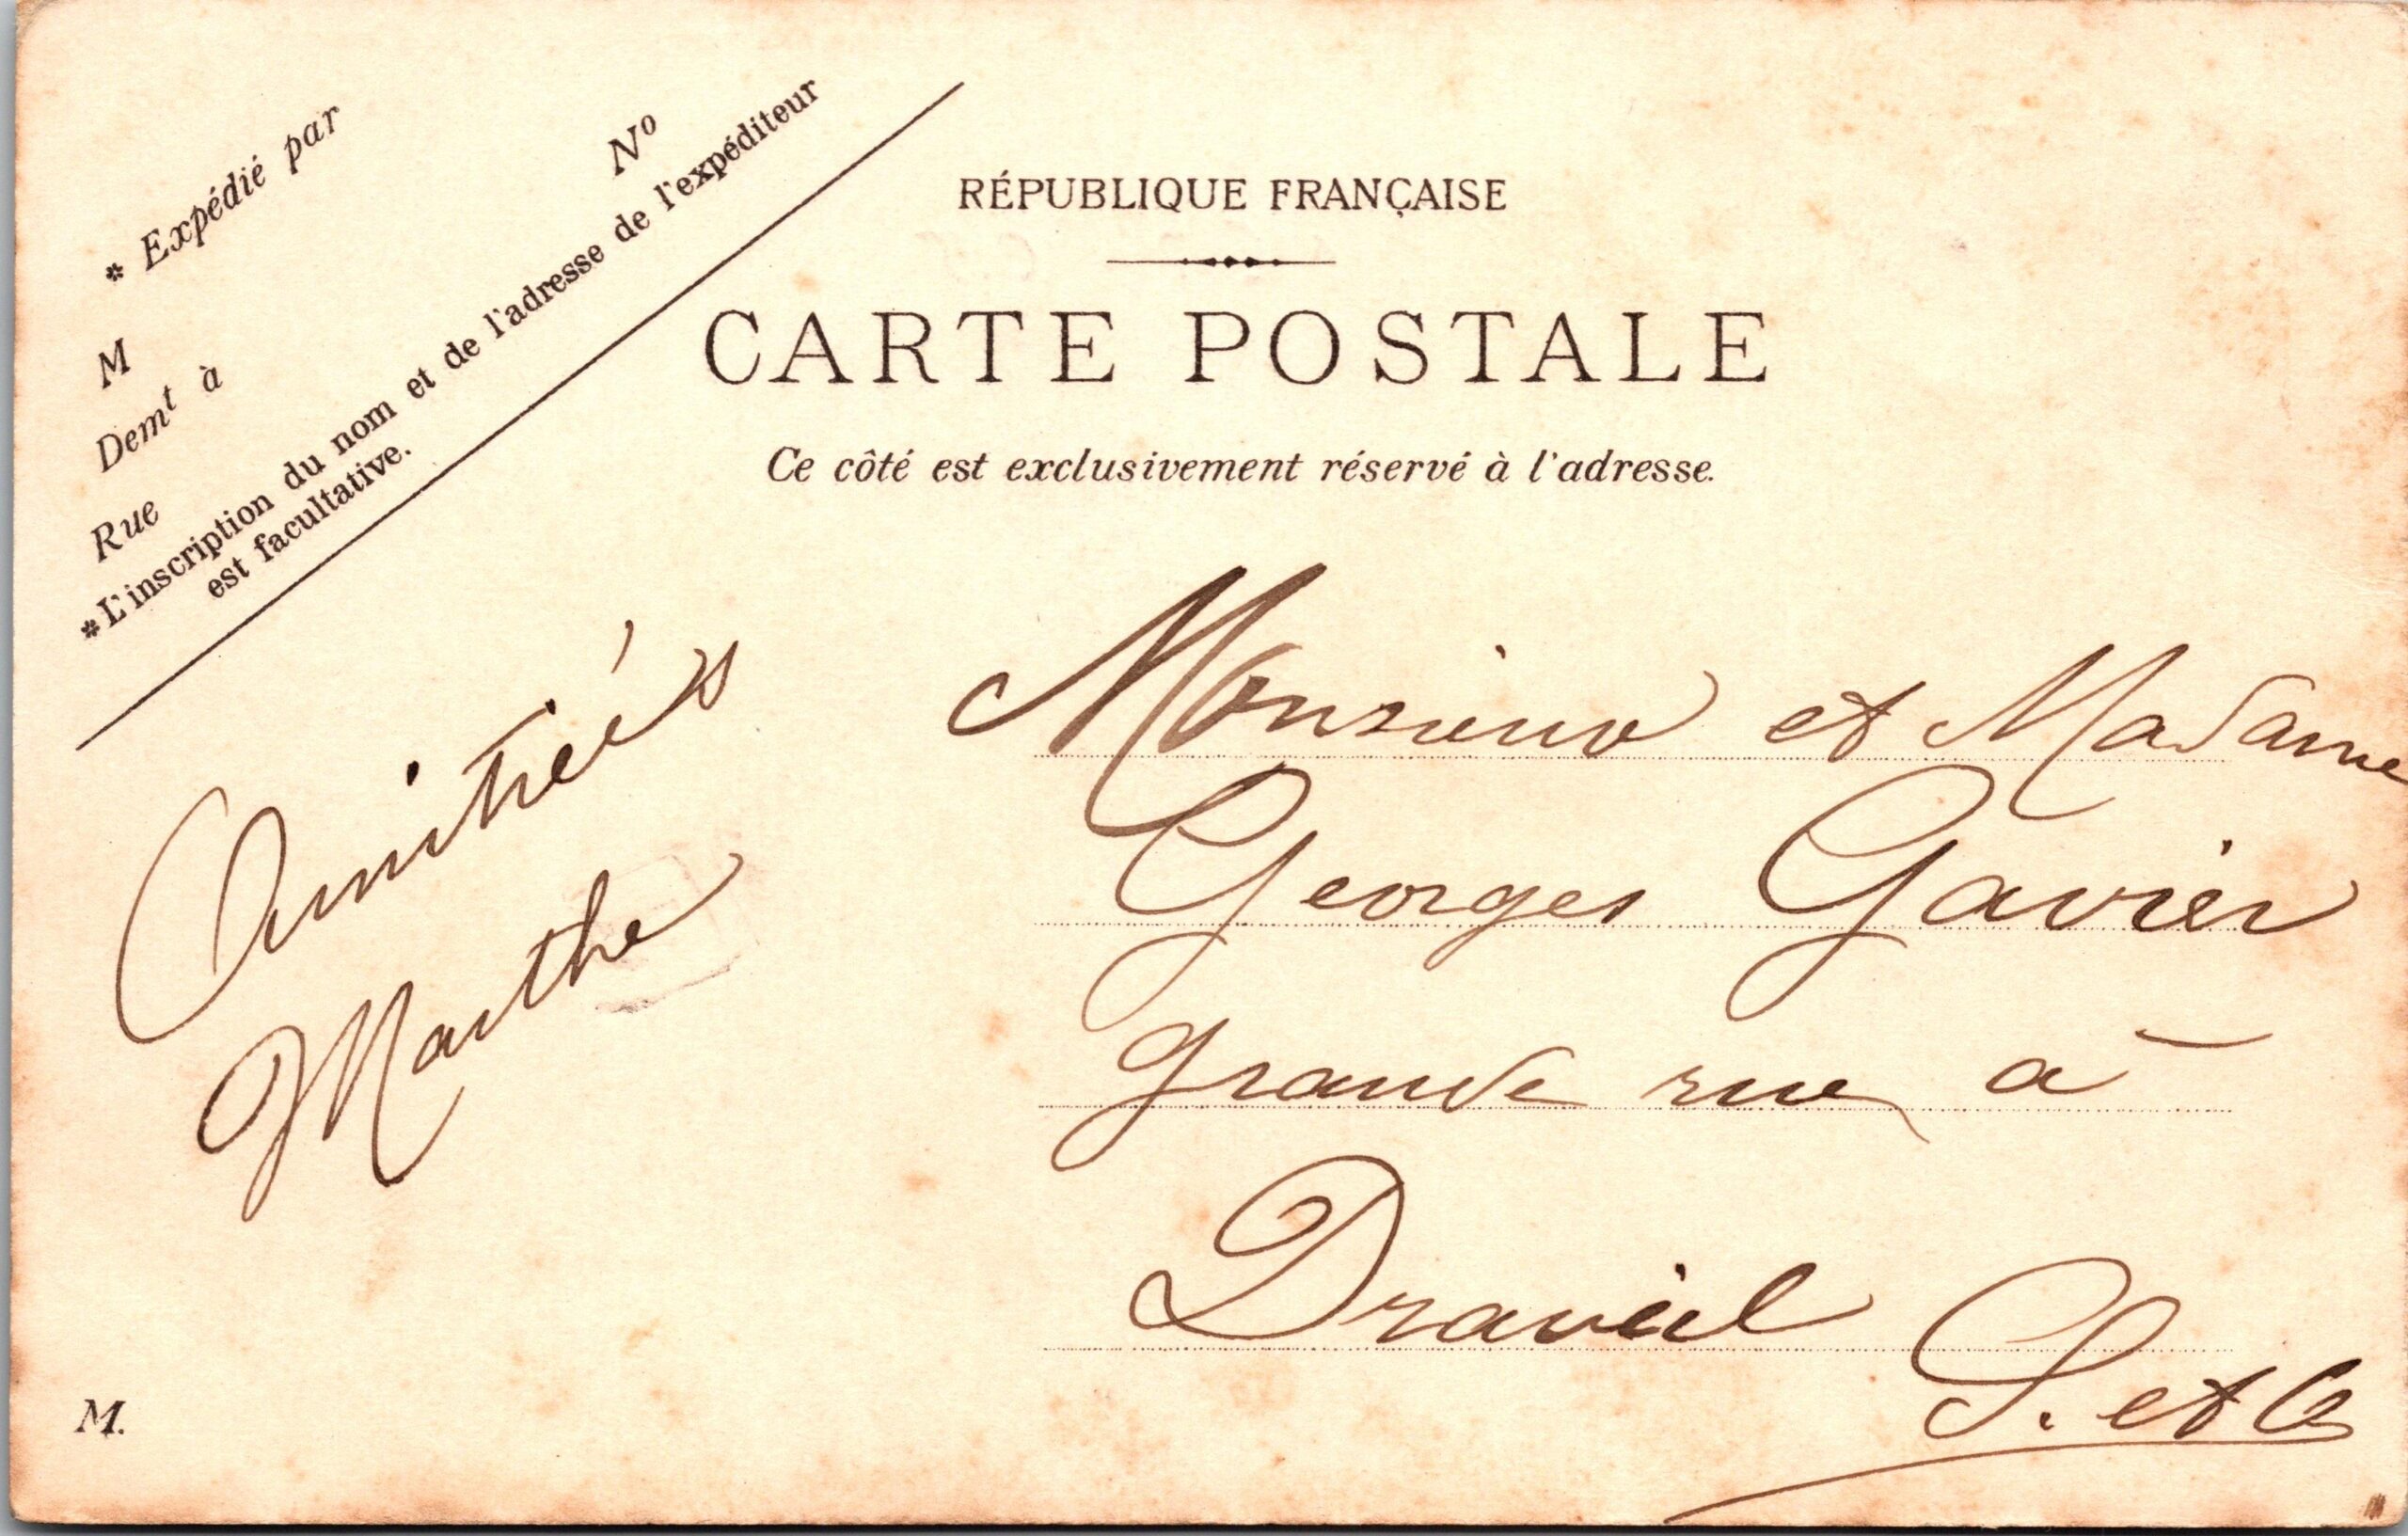 * Expédié par
M
Demt à
Rue
No
* L'inscription du nom et de l'adresse de l'expéditeur
est facultative.
RÉPUBLIQUE FRANÇAISE
CARTE POSTALE
Ce côté est exclusivement réservé à l'adresse.
Amitiés
Marthe
Monsieur et Madame
Georges Gavier
grande rue à
Draveil
S. et O
M.